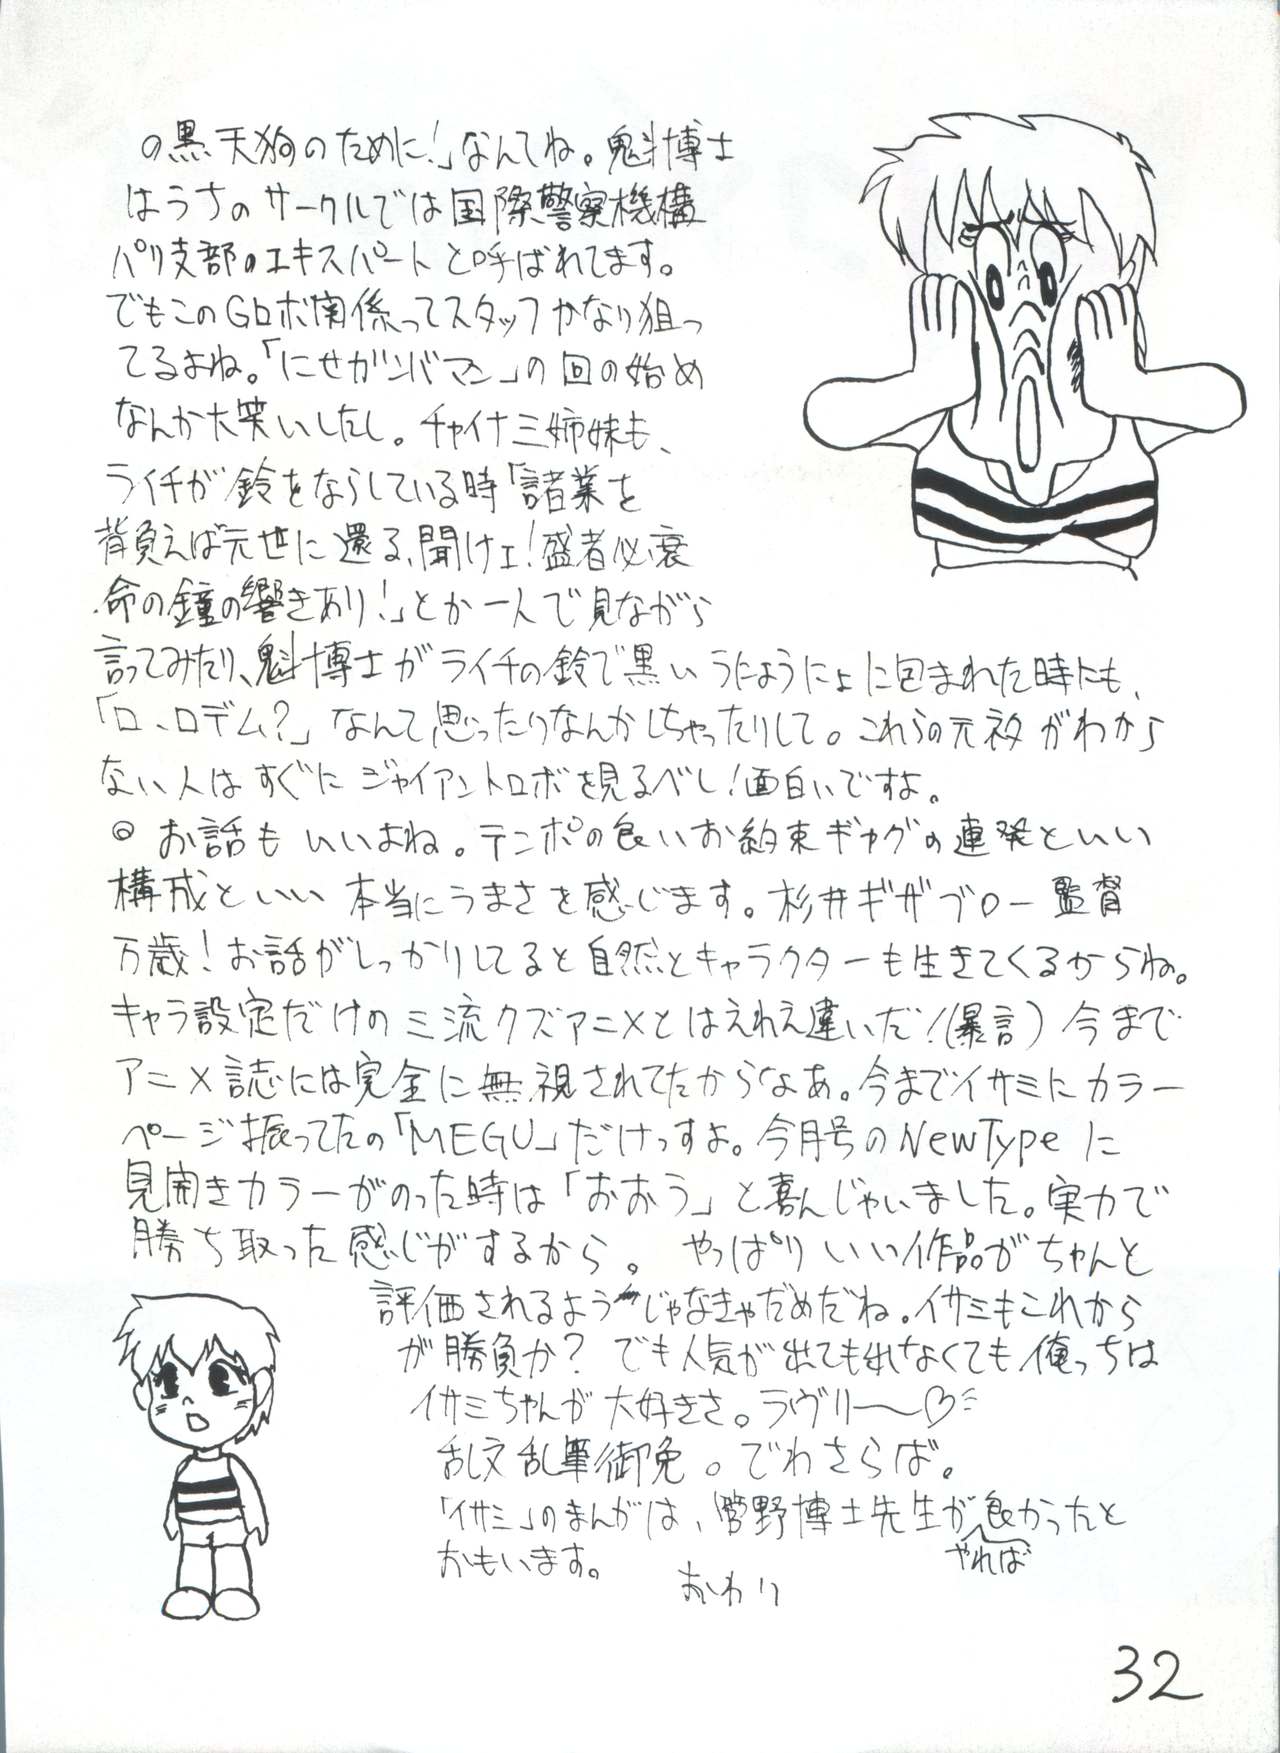 の黒天狗のために！」なんてね。魁博士
はうちのサークルでは国際警察機構
パリ支部のエキスパートと呼ばれてます。
でもこのGロボ関係ってスタッフかなり狙っ
てるよね。「にせガンバマン」の回の始め
なんか大笑いしたし。チャイナ三姉妹も、
ライチが鈴をならしている時「諸業を
背負えば元世に還る、聞けェ！盛者必衰
命の鐘の響きあり！」とか一人で見ながら
言ってみたり、魁博士がライチの鈴で黒いうにょうにょに包まれた時にも、
「ロ、ロデム？」なんて思ったりなんかしちゃったりして。これらの元ネタがわから
ない人はすぐにジャイアントロボを見るべし！面白いですよ。
◎お話もいいよね。テンポの良いお約束ギャグの連発といい
構成といい本当にうまさを感じます。杉井ギサブロー監督
万歳！お話がしっかりしてると自然とキャラクターも生きてくるからね。
キャラ設定だけの三流クズアニメとはえれえ違いだ！（暴言）今まで
アニメ誌には完全に無視されてたからなあ。今までイサミにカラー
ページ振ってたの「MEGU」だけっすよ。今月号のNewTypeに
見開きカラーがのった時は「おおう」と喜んじゃいました。実力で
勝ち取った感じがするから。やっぱりいい作品がちゃんと
評価されるようじゃなきゃだめだね。イサミもこれから
が勝負か？でも人気が出ても出なくても俺っちは
イサミちゃんが大好きさ。ラヴリー〜♡
乱文乱筆御免。でわさらば。
「イサミ」のまんがは、菅野博士先生がやれば良かったと
おもいます。
おわり
32